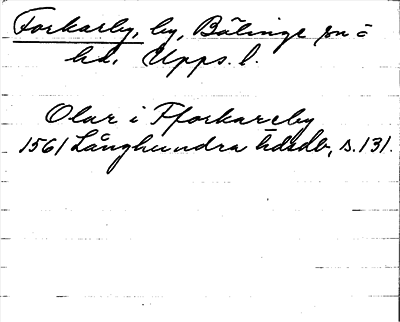 Forkarby, by, Bälinge sn o
hd, Upps. l.
Olar i Fforkareby
1561 Långhundra hdsdb, s. 131.